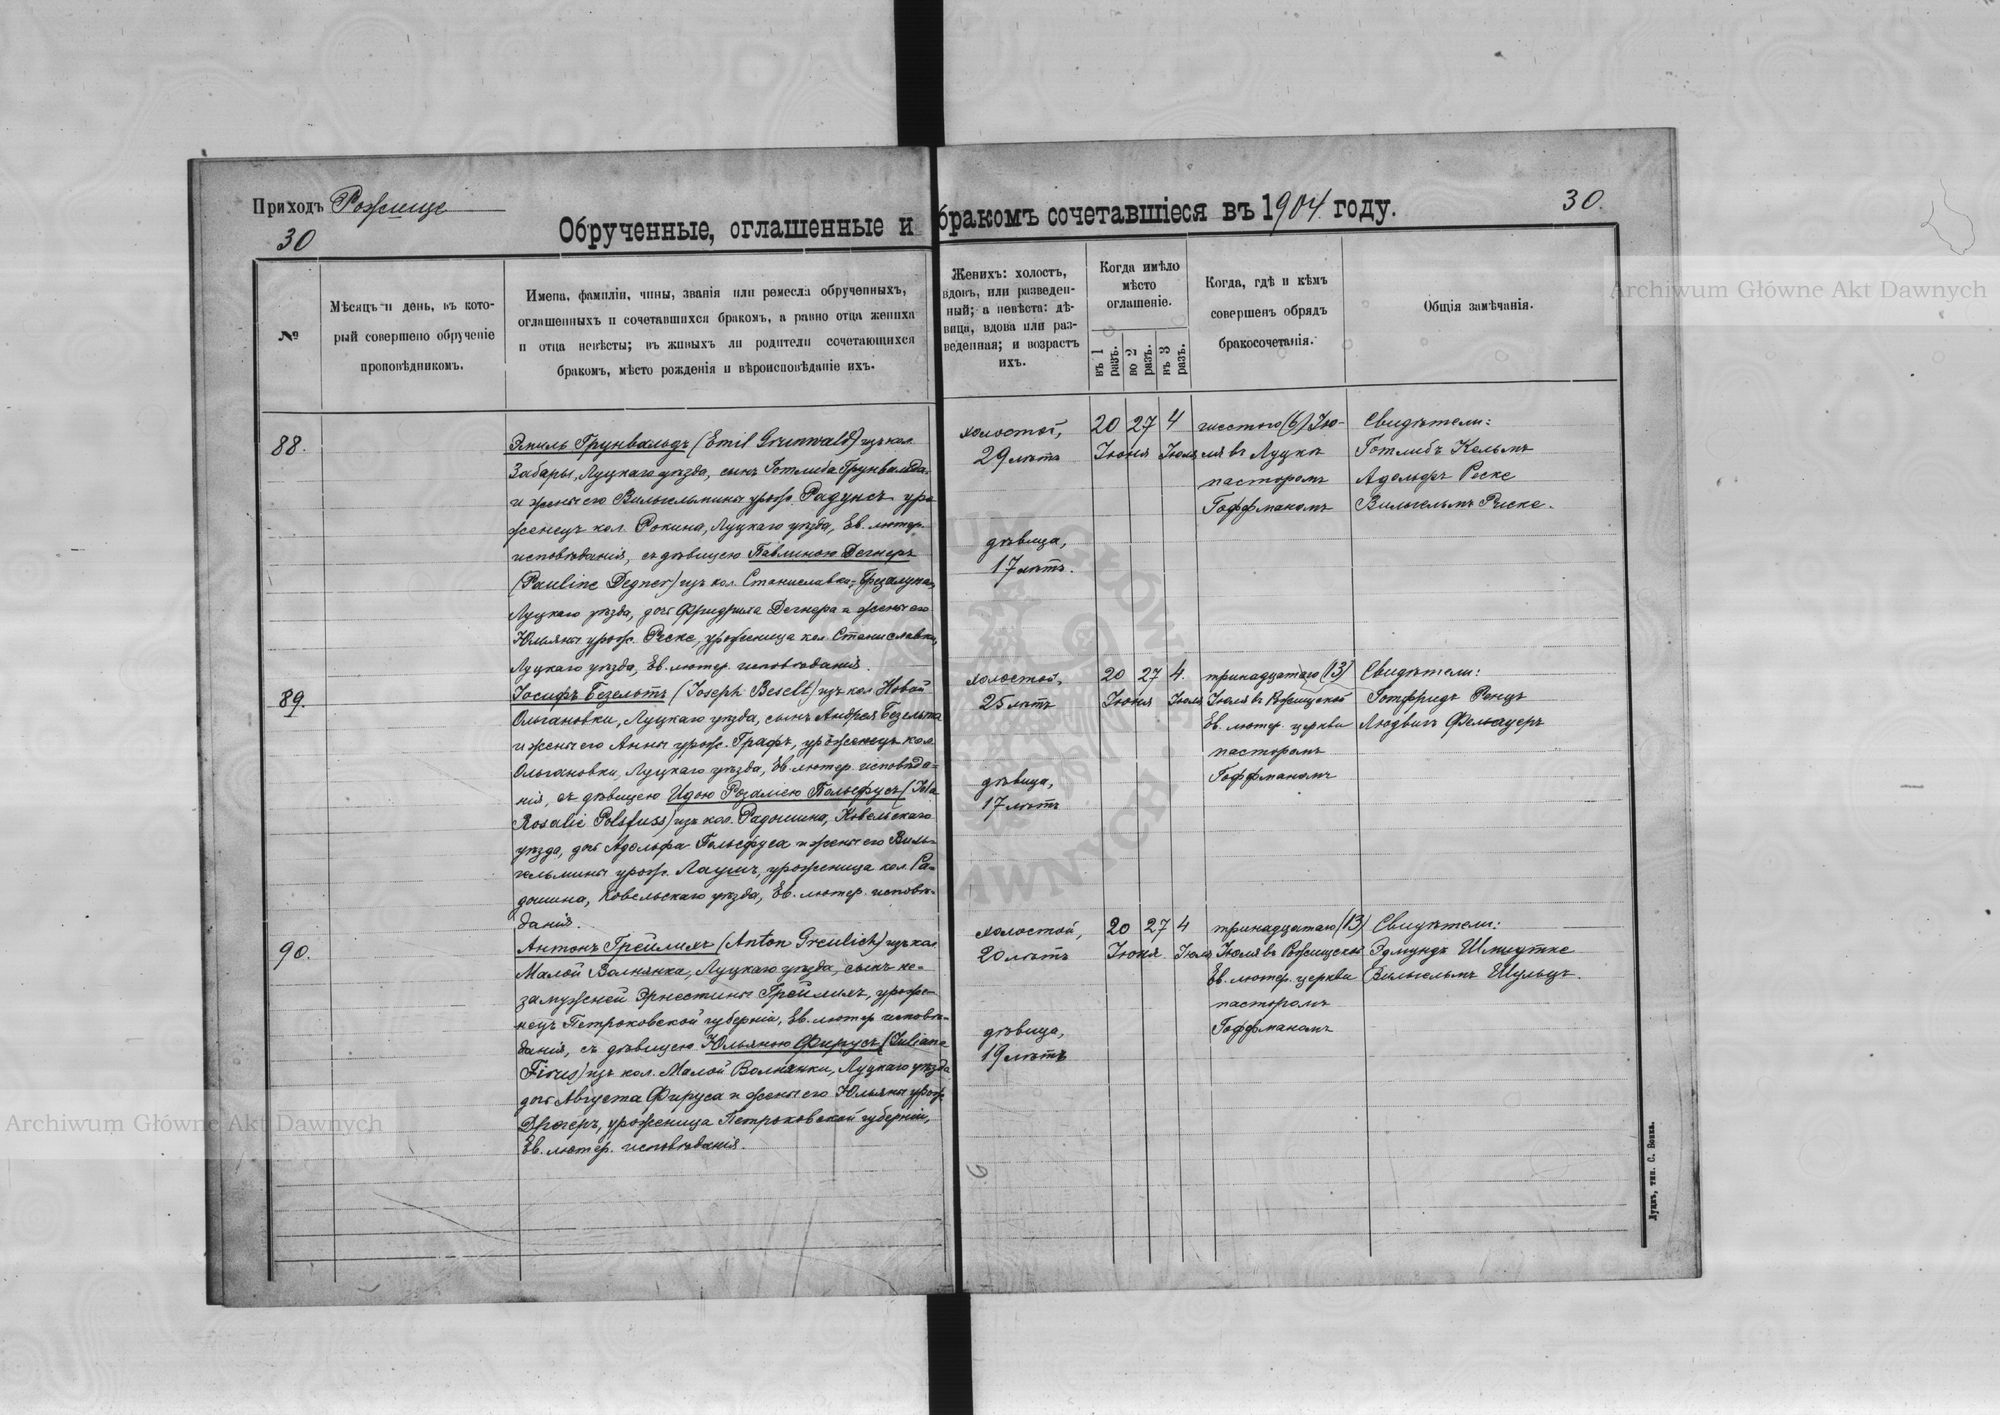 Приходъ Рожище
30
30.
Обрученные, оглашенные и бракомъ сочетавшіеся въ 1904 году.
№
Мѣсяцъ и день, въ кото-
рый совершено обрученіе
проповѣдникомъ.
Имена, фамиліи, чины, званія или ремесла обрученныхъ,
оглашенныхъ и сочетавшихся бракомъ, а равно отца жениха
и отца невѣсты; въ живыхъ ли родители сочетающихся
бракомъ, мѣсто рожденія и вѣроисповѣданіе ихъ.
Женихъ: холостъ,
вдовъ, или разведен-
ный; а невѣста: дѣ-
вица, вдова или раз-
веденная; и возрастъ
ихъ.
Когда имѣло
мѣсто
оглашеніе.
въ 1 разъ.
во 2 разъ.
въ 3 разъ.
Когда, гдѣ и кѣмъ
совершенъ обрядъ
бракосочетанія.
Общія замѣчанія.
88.
Эмиль Грунвальдъ (Emil Grunwald) изъ кол.
Забары, Луцкаго уѣзда, сынъ Готлиба Грунвальда
и жены его Вильгельмины урож. Радунсъ, уро
женецъ кол. Рокина, Луцкаго уѣзда, Ев. лютер.
исповѣданія, съ дѣвицею Павлиною Дегнеръ
(Pauline Degner) изъ кол. Станиславка-
Луцкаго уѣзда, дочь Фридриха Дегнера и жены его
Юльяны урож. Рѣске, уроженица кол. Станиславка,
Луцкаго уѣзда, Ев. лютер. исповѣданія.
холостой,
29 лѣтъ
дѣвица,
17 лѣтъ.
20 27 4
Іюня Іюля
шестого (6) Ію-
ля въ Луцкѣ
пасторомъ
Гоффманомъ
Свидѣтели:
Готлибъ Кельмъ
Адольфъ Рѣске
Вильгельмъ Рѣске.
89.
Іосифъ Безельтъ (Joseph Beselt) изъ кол. Новой
Ольгановки, Луцкаго уѣзда, сынъ Андрея Безельта
и жены его Анны урож. Графъ, уроженецъ кол.
Ольгановки, Луцкаго уѣзда, Ев. лютер. исповѣда-
нія, съ дѣвицею Идою Розаліею Польфусъ (Ida
Rosalie Polsfuss) изъ кол. Радошина, Ковельскаго
уѣзда, дочь Адольфа Польсфуса и жены его Виль-
гельмины урож. Лаушъ, уроженица кол. Ра-
дошина, Ковельскаго уѣзда, Ев. лютер. исповѣ-
данія.
холостой,
25 лѣтъ
дѣвица,
17 лѣтъ
20 27 4.
Іюня Іюля
тринадцатаго (13)
Іюля въ Рожищской
Ев. лютер. церкви
пасторомъ
Гоффманомъ
Свидѣтели:
Готфридъ Ренцъ
Людвигъ Фельауеръ
90.
Антонъ Грейлихъ (Anton Greulich) изъ кол.
Малой Волнянка, Луцкаго уѣзда, сынъ не-
замужней Эрнестины Грейлихъ, уроже-
нецъ Петроковской губерніи, Ев. лютер. исповѣ-
данія, съ дѣвицею Юльяною Фирусъ (Juliana
Firus) изъ кол. Малой Волнянки, Луцкаго уѣзда
дочь Августа Фируса и жены его Юльяны урож.
Дрегеръ, уроженица Петроковской губерніи,
Ев. лютер. исповѣданія.
холостой,
20 лѣтъ
дѣвица,
19 лѣтъ
20 27 4
Іюня Іюля
тринадцатаго (13)
Іюля въ Рожищской
Ев. лютер. церкви
пасторомъ
Гоффманомъ
Свидѣтели:
Эдмундъ Штутке
Вильгельмъ Шульцъ.
Луцкъ, тип. С. Бонка.
Archiwum Główne Akt Dawnych
Archiwum Główne Akt Dawnych